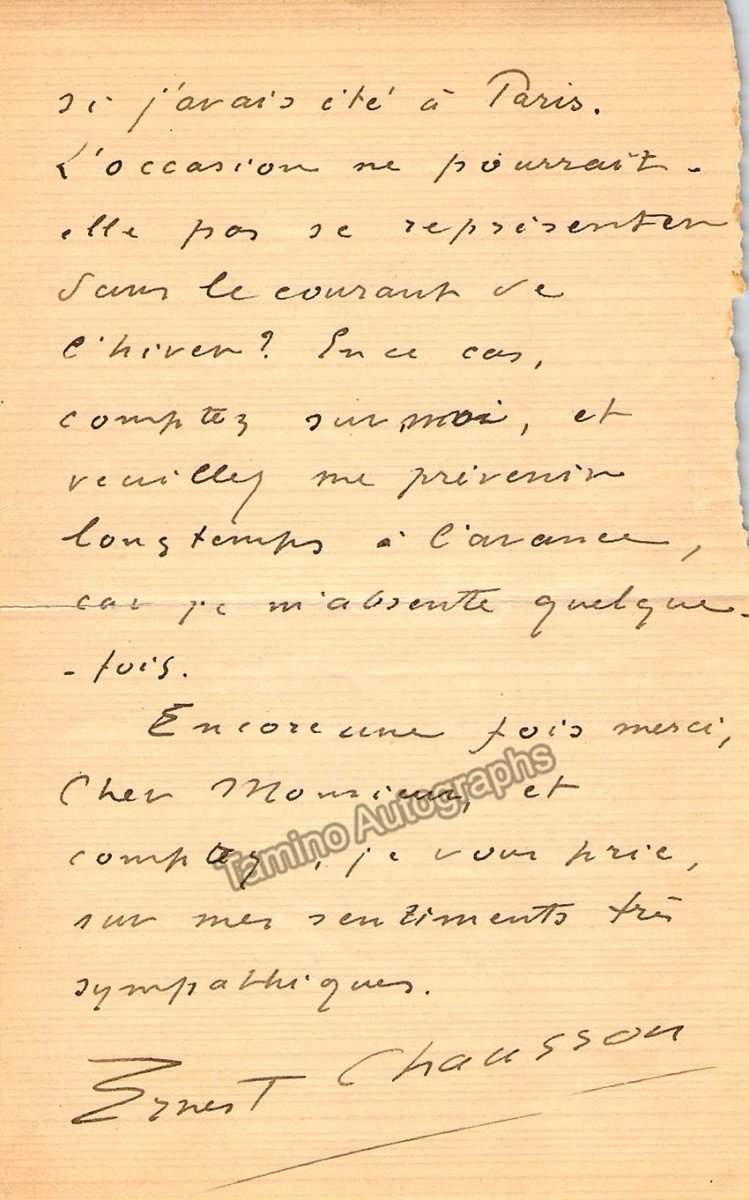 si j'avais été à Paris.
L'occasion ne pourrait-
elle pas se représenter
dans le courant de
l'hiver? En ce cas,
comptez sur moi, et
veuillez me prévenir
longtemps à l'avance,
car je m'absente quelque-
-fois.
Encore une fois merci,
Cher Monsieur, et
comptez, je vous prie,
sur mes sentiments très
sympathiques.
Ernest Chausson
Tamino Autographs